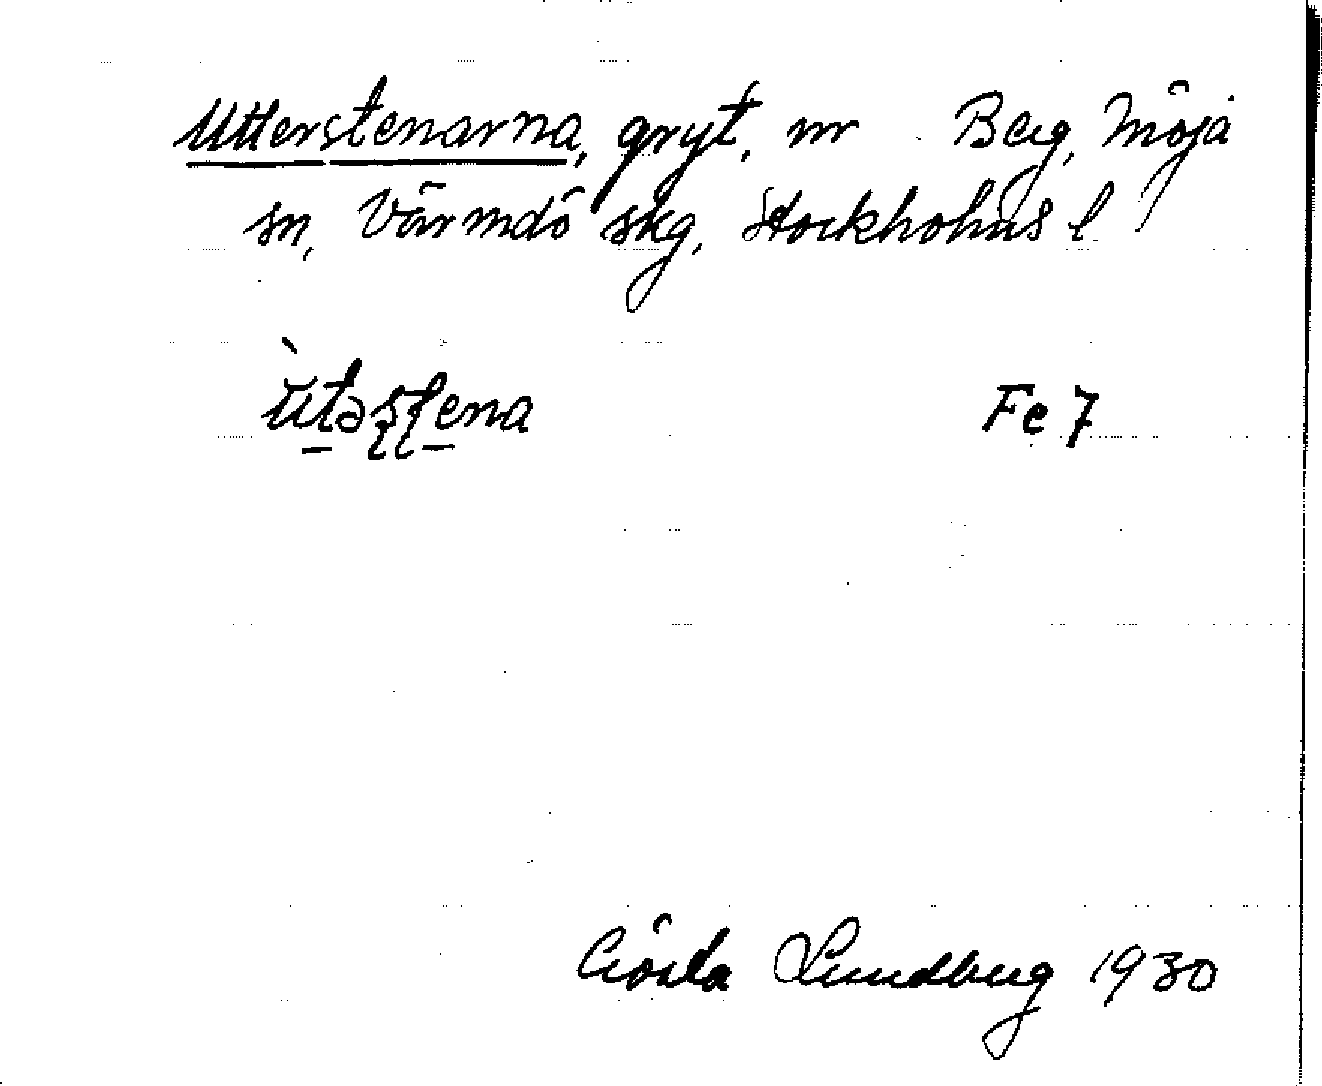 Utterstenarna, gryt, nr Berg, Möja
sn, Värmdö skg, Stockholms l
Fe 7
Gösta Lundberg 1930